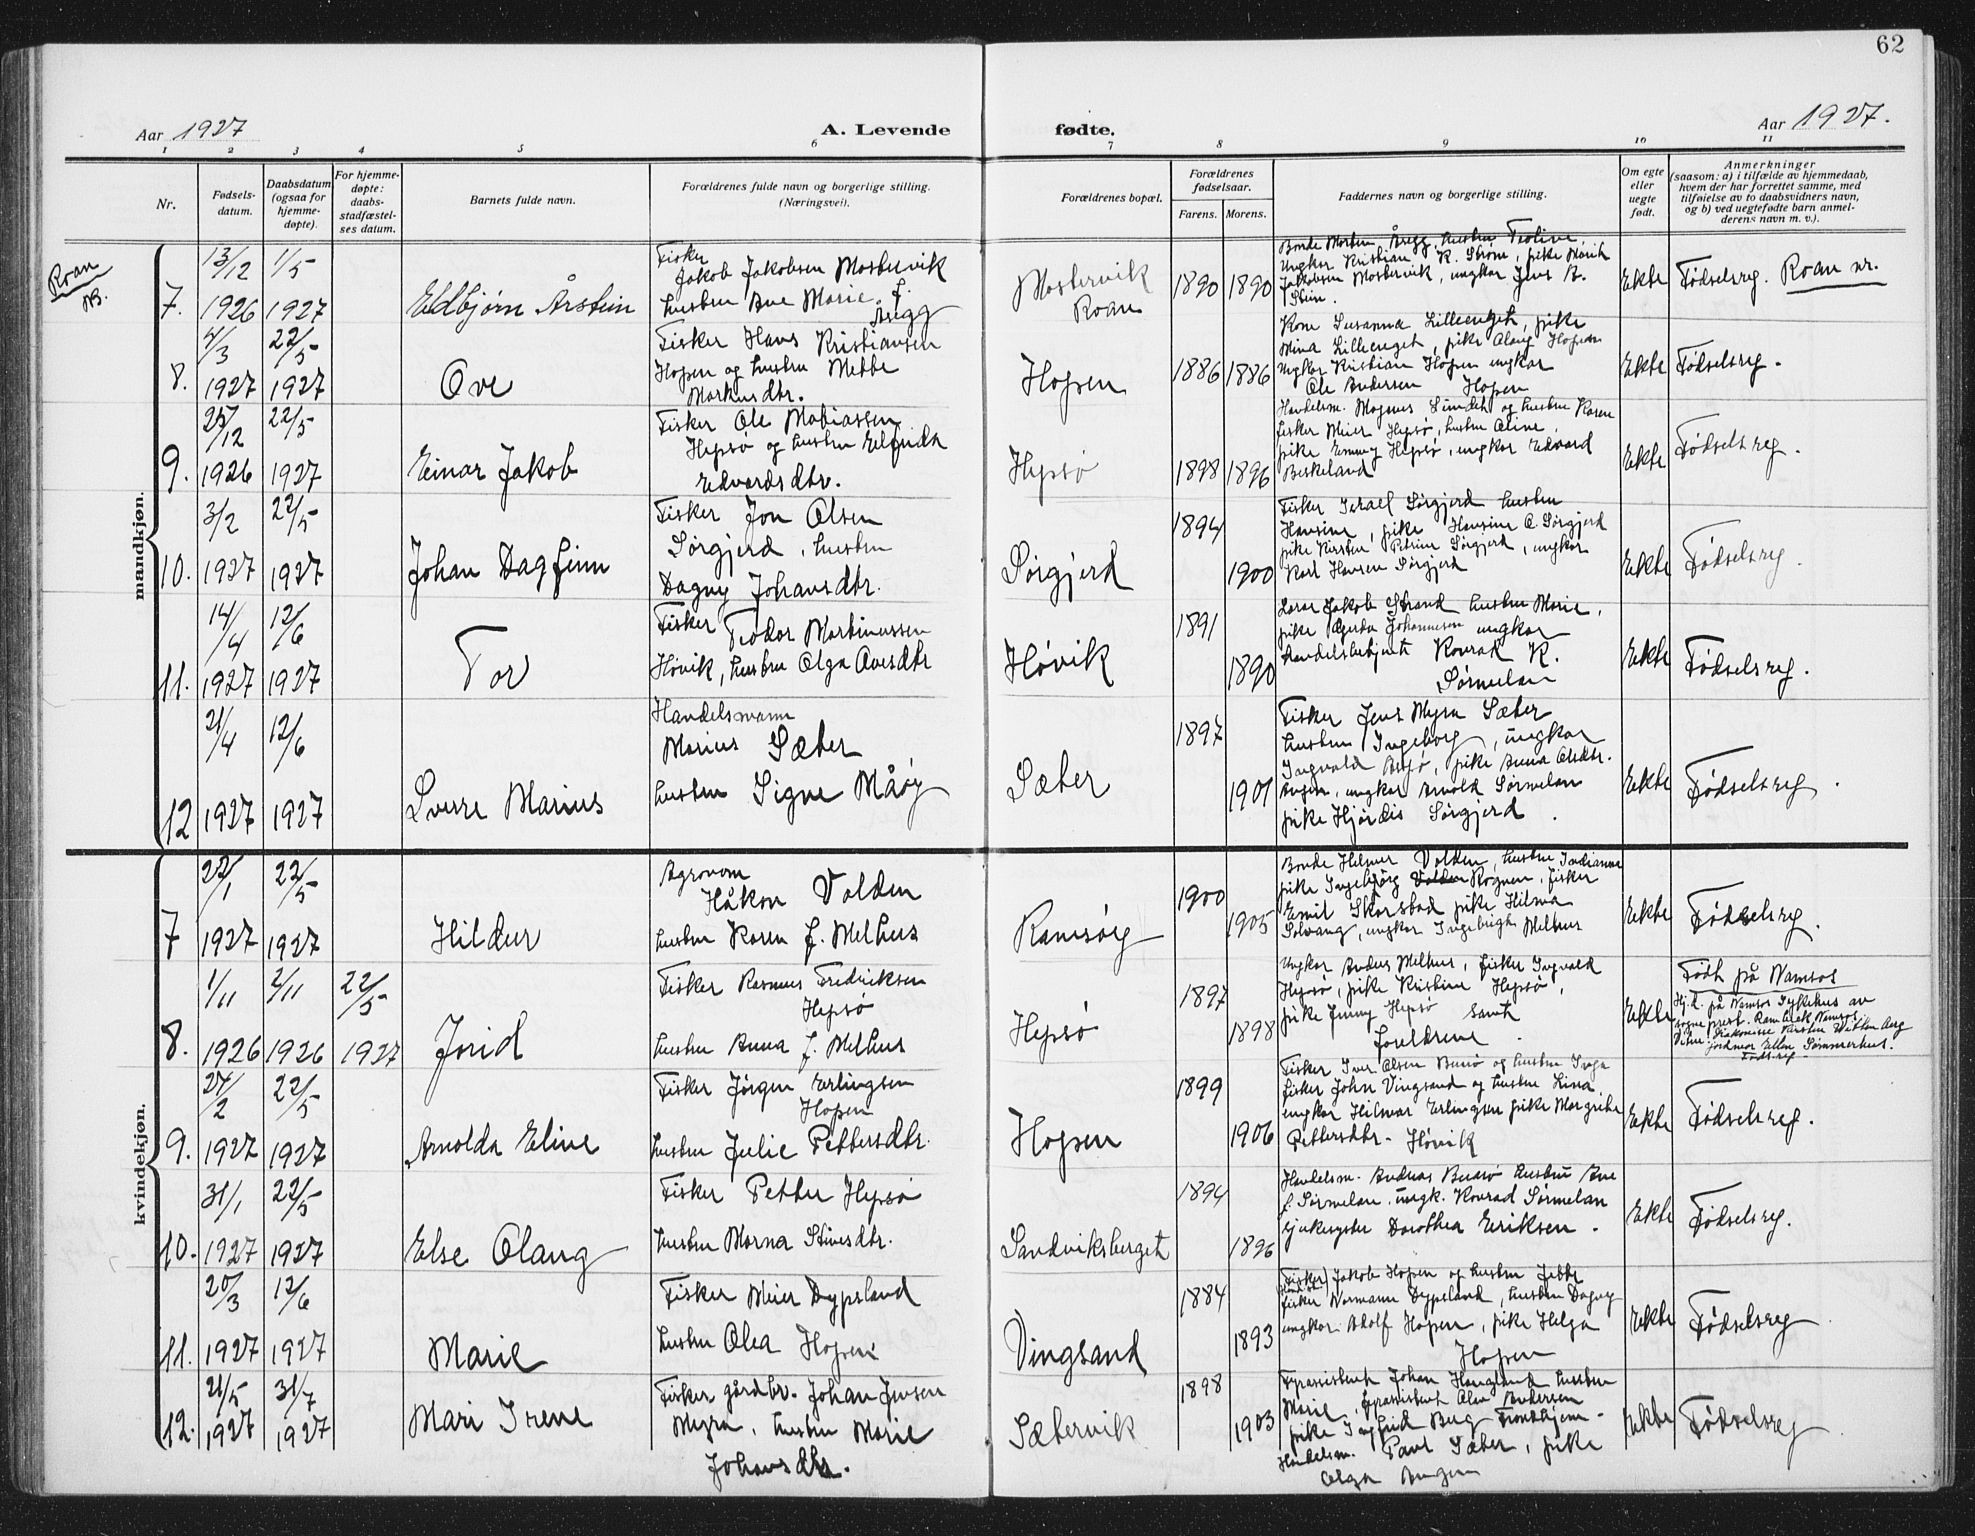 62
Aar 1927
A. Levende
fødte.
Aar 1927.
1 2 3 4 5 6 7 8 9 10 11
Nr.
Fødsels-
datum.
Daabsdatum
(ogsaa for
hjemme-
døpte).
For hjemme-
døpte:
daabs-
stadfæstel-
ses datum.
Barnets fulde navn.
Forældrenes fulde navn og borgerlige stilling.
(Næringsvei).
Forældrenes bopæl.
Forældrenes
fødselsaar.
Farens. Morens.
Faddernes navn og borgerlige stilling.
Om egte
eller
uegte
født.
Anmerkninger
(saasom: a) i tilfælde av hjemmedaab,
hvem der har forrettet samme, med
tilføielse av to daabsvidners navn,
og b) ved uegtefødte barn anmel-
derens navn m. v.).
mandkjøn.
Roan
7. 13/12 1926 1/5 1927
Eldbjørn Årstein
Fisker
Jakob Jakobsen Mostervik
hustru Ane Marie f.
Bregg
Mostervik
Roan
1890 1890
Ungkar Kristian K. Strøm, pike Marit
Jakobsen Mostervik, ungkar Jens B.
Stein.
Ekte
Fødselsreg. Roan nr.
8. 4/3 1927 22/5 1927
Ove
Fisker Hans Kristiansen
Hopen og hustru Mette
Markusdtr.
Hopen
1886 1886
Kone Susanna Lilleenget, pike
Mina Lilleenget, pike Olaug Hopen
ungkar Kristian Hopen ungkar
Ole Andersen Hopen
Ekte
Fødselsreg.
9. 25/12 1926 22/5 1927
Einar Jakob
Fisker Ole Mobiassen
Hepsø og hustru Elfrida
Edvardsdtr.
Hepsø
1898 1896
Handelsm. Magnus Sundet og hustru Karen
fisker Meier Hepsø, hustru Aline,
pike Emmy Hepsø, ungkar Edvard
Beskeland
Ekte
Fødselsreg.
10. 3/2 1927 22/5 1927
Johan Dagfinn
Fisker Jon Olsen
Sørgjerd, hustru
Dagny Johansdtr.
Sørgjerd
1894 1900
Fisker Israel Sørgjerd hustru
Hansine, pike Hansine O. Sørgjerd
pike Kirsten Petrine Sørgjerd, ungkar
Karl Hansen Sørgjerd
Ekte
Fødselsreg.
11. 14/4 1927 12/6 1927
Tor
Fisker Teodor Martinussen
Høvik, hustru Olga Ovesdtr
Høvik
1891 1890
Lærer Jakob Strand hustru Marie,
pike Gerda Johannesen ungkar
handelsbetjent Konrad K.
Sørmelan
Ekte
Fødselsreg.
12 21/4 1927 12/6 1927
Sverre Marius
Handelsmann
Marius Sæter
hustru Signe Måøy
Sæter
1897 1901
Fisker Jens Myra Sæter
hustru Ingeborg, ungkar
Ingvald Bessø, pike Anna Olektr.
ungkar Arnold Sørmelan
pike Hjørdis Sørgjerd.
Ekte
Fødselsreg.
kvindekjøn.
7 22/1 1927 22/5 1927
Hildur
Agronom
Håkon Volden
hustru Karen f. Melhus
Ramsøy
1900 1905
Bonde Hilmar Volden, hustru Indianna
pike Ingebjørg Volden Rognen, fisker
Emil Skarstad pike Hilma
Solvang, ungkar Ingebrigt Melhus
Ekte
Fødselsreg.
8. 1/11 1926 2/11 1926 22/5 1927
Jorid
Fisker Rasmus Fredriksen
Hepsø
hustru Anna f. Melhus
Hepsø
1897 1898
Ungkar Anders Melhus, fisker Ingvald
Hepsø, pike Kristine Hepsø,
pike Jenny Hepsø samt
foreldrene.
Ekte
Født på Namsos
Hj.d. på Namsos Sykehus av
sogneprest. Rambæk, Namsos
Vitne: Diakonisse Kirsten Watten Aarg
jordmor Ellen Sommerhus.
Føds.reg.
9. 24/2 1927 22/5 1927
Arnolda Eline
Fisker Jørgen Erlingsen
Hopen
hustru Julie Pettersdtr.
Hopen
1899 1906
Fisker Iver Olsen Bessø og hustru Inga
fisker John Vingsand og hustru Lina
ungkar Hilmar Erlingsen pike Margrete
Pettersdtr. Høvik
Ekte
Fødselsreg.
10. 31/1 1927 22/5 1927
Else Olaug
Fisker Petter Hepsø
hustru Marna Stinesdtr.
Sandviksberget
1894 1896
Handelsm. Andreas Bessø hustru Ane
f. Sørmelan, ungk. Konrad Sørmelan
sykesyster Dorothea Eriksen.
Ekte
Fødselsreg.
11. 20/3 1927 12/6 1927
Marie
Fisker Meier Dypsland
hustru Olea Hopen
Vingsand
1884 1893
Fisker Jakob Hopen og hustru Jette
fisker Normann Dypsland, hustru Dagny
ungkar Adolf Hopen, pike Helga
Hopen
Ekte
Fødselsreg
12. 21/5 1927 31/7 1927
Mari Irene
Fisker gårdbr. Johan Jensen
Myra, hustru Marie
Johansdtr.
Sætervik
1898 1903
Fyrassistent Johan Haugland hustru
Marie, fyrassistent Olav Andersen
pike Ingfrid Berg Trondhjem.
Handelsm. Paul Sæter, pike
Olga
Ekte
Fødselsreg